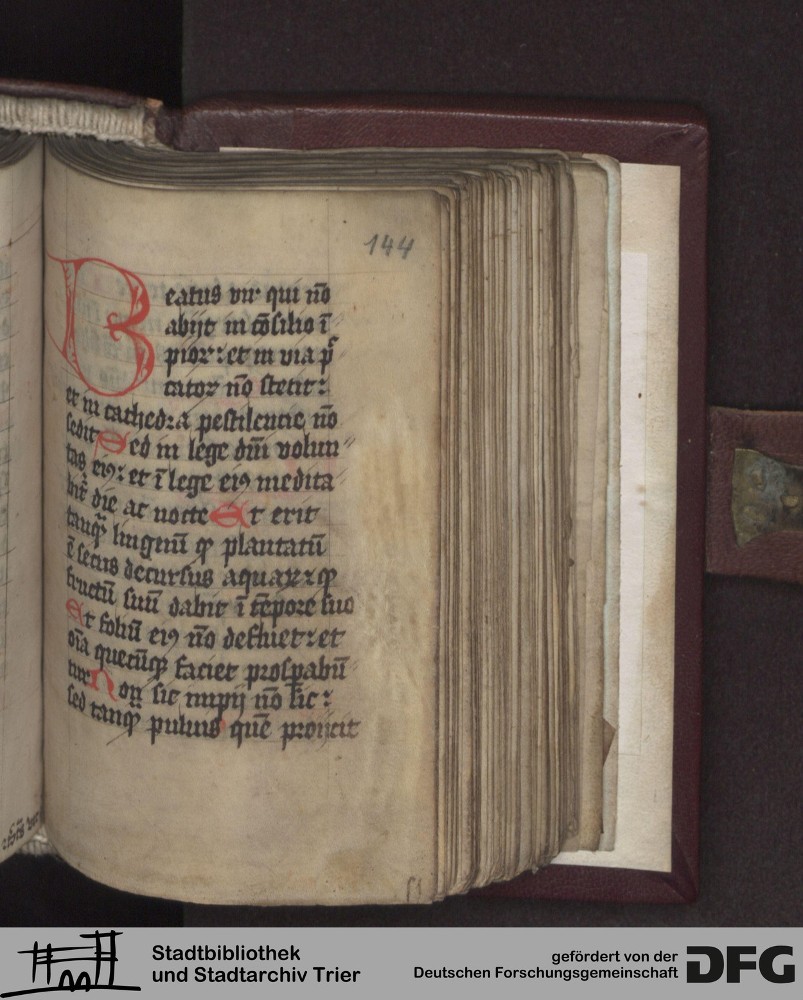 144
Beatus vir qui nō
abijt in cōsilio ī
pioꝝ : et in via pͨ
cator nō stetit :
et in cathedra pestilencie nō
sedit Sed in lege dn̄i volun"
tas eiꝰ : et ī lege eiꝰ medita
bit̄ die ac nocte Et erit
tanqͣ lingnū qͦ plantatū
ē secus decursus aquaꝝ : qͦ
fructū suū dabit ī tēpore suo
Et foliū eiꝰ nō defluet : et
oīa quecūqꝫ faciet prosꝑabū"
tur Non sic impij nō sic :
sed tanqͣ puluis quē proicit
Stadtbibliothek
und Stadtarchiv Trier
gefördert von der
Deutschen Forschungsgemeinschaft
DFG